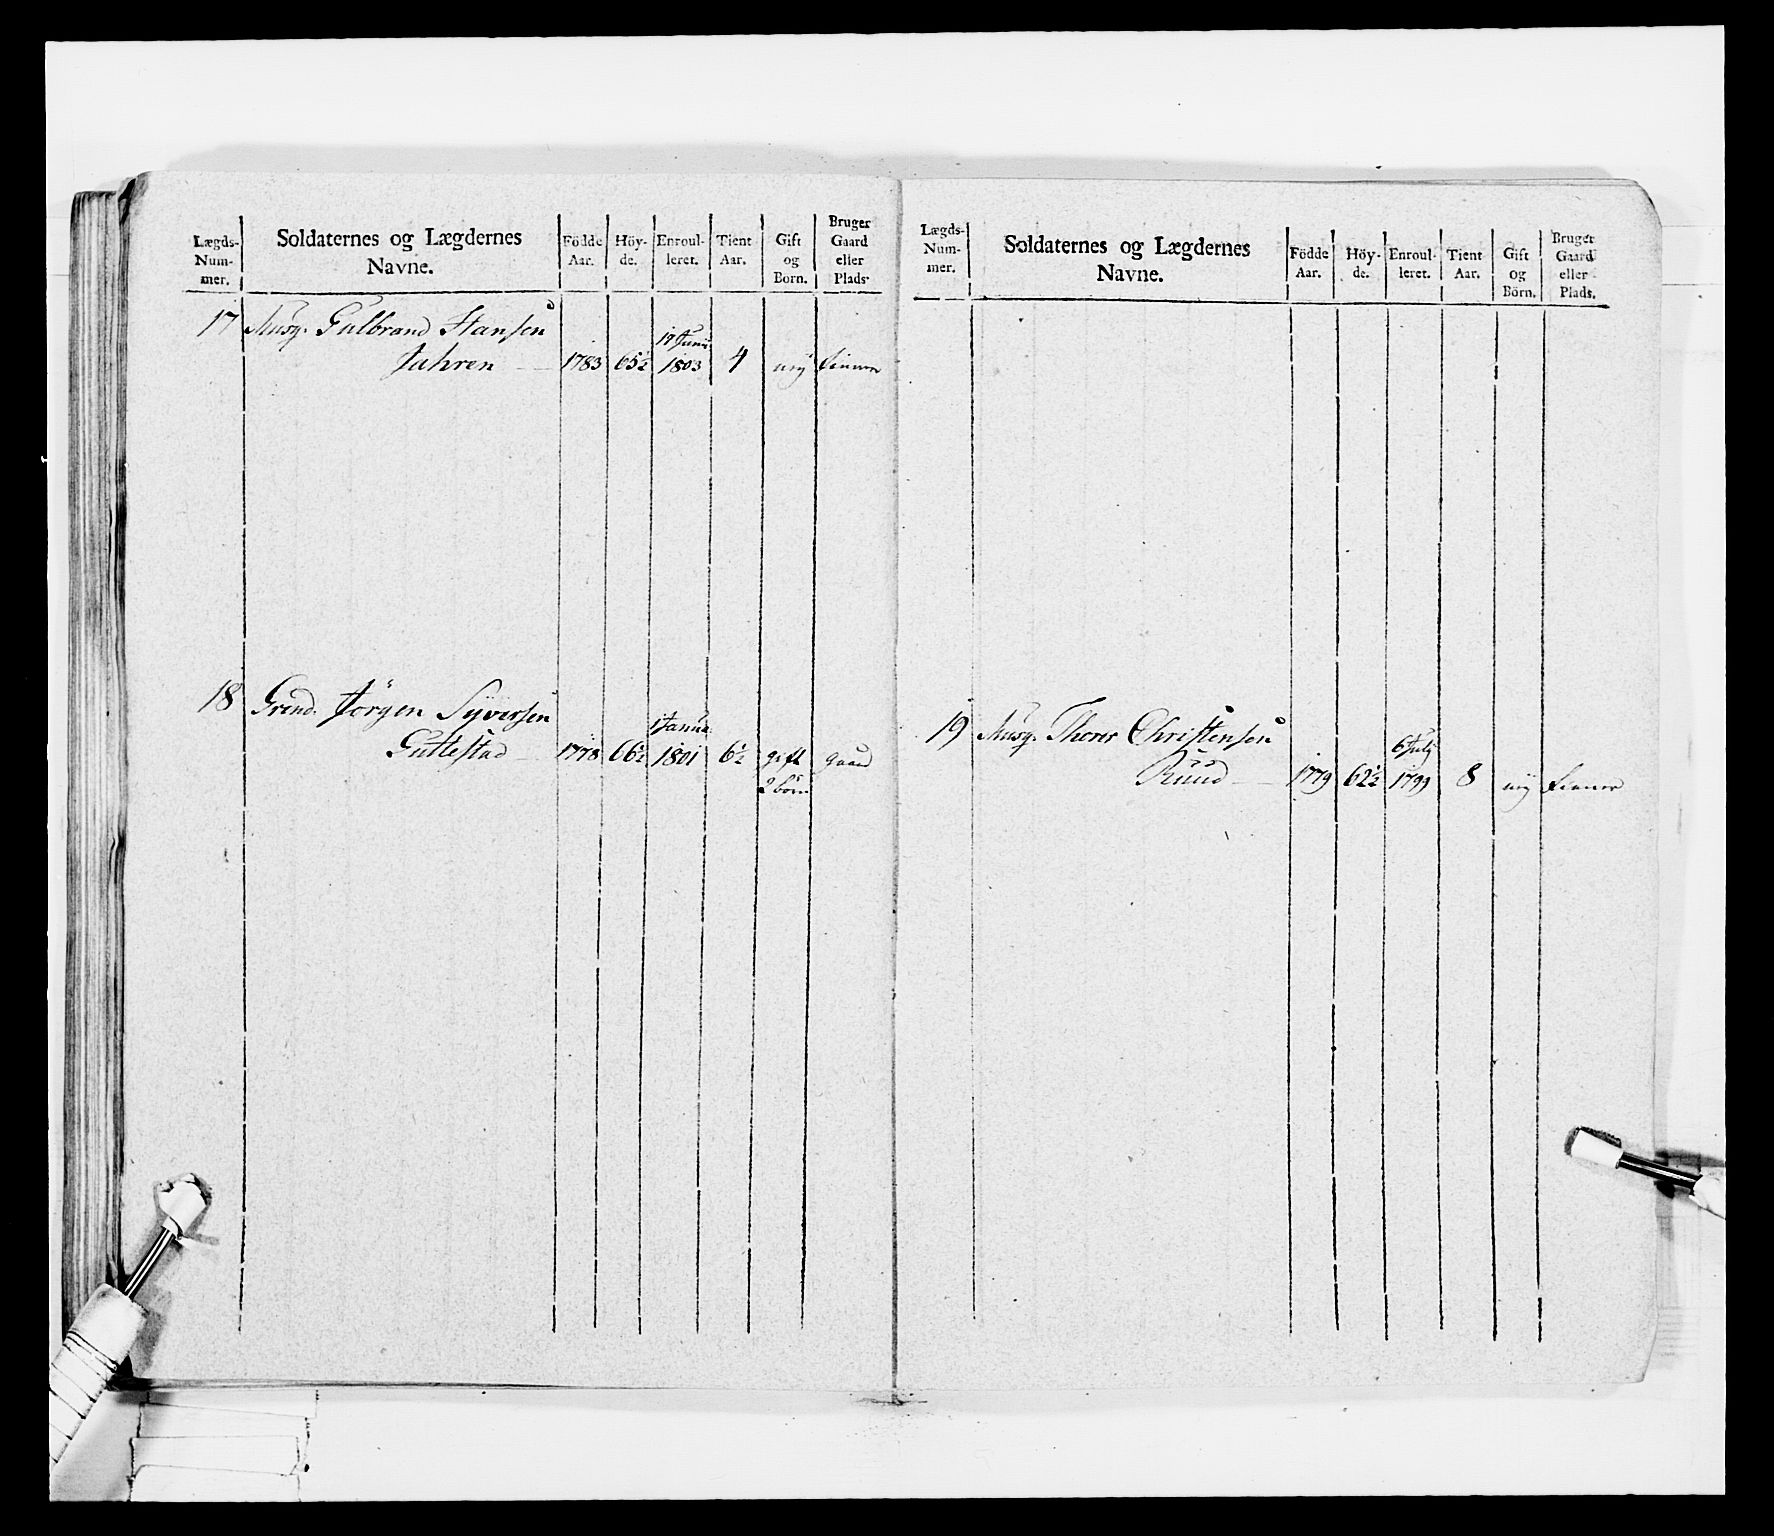 Lægds-Num-mer. Soldaternes og Lægdernes Navne. Födde Aar. Höy-de. Enroul-leret. Tient Aar. Gift og Born. Bruger Gaard eller Plads.
17 Musq. Gulbrand Hansen
17 Junii
Jahren — 1783 65½ 1803 4 tiener
18 Grend. Jörgen Syversen
1 Janua.
Guttestad — 1778 66½ 1801 6½ gift gaard
2 börn
Lægds-Num-mer. Soldaternes og Lægdernes Navne. Födde Aar. Höy-de. Enroul-leret. Tient Aar. Gift og Börn. Bruger Gaard eller Plads.
19 Musq. Thorer Christensen
6 July
Ruud — 1779 62½ 1799 8 tiener